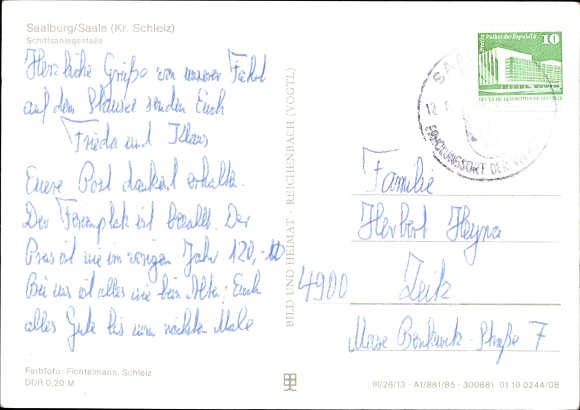 Saalburg/Saale (Kr. Schleiz)
Schiffsanlegestelle
Herzliche Grüße von unserer Fahrt
auf dem Stausee senden Euch
Frieda und Klaus
Euere Post dankend erhalten.
Der Ferienplatz ist bezahlt. Der
Preis ist wie im vorigen Jahr 120,-
Bei uns ist alles wie beim Alten. Euch
alles Gute bis zum nächsten Male
Farbfoto: Fichtelmann, Schleiz
DDR 0,20 M
BILD UND HEIMAT · REICHENBACH (VOGTL)
Berlin Palast der Republik 10
DEUTSCHE DEMOKRATISCHE REPUBLIK
ERHOLUNGSORT DER
Familie
Herbert
4900 Zeitz
Straße 7
III/26/13 · A1/881/85 · 300881 01 10 0244/08